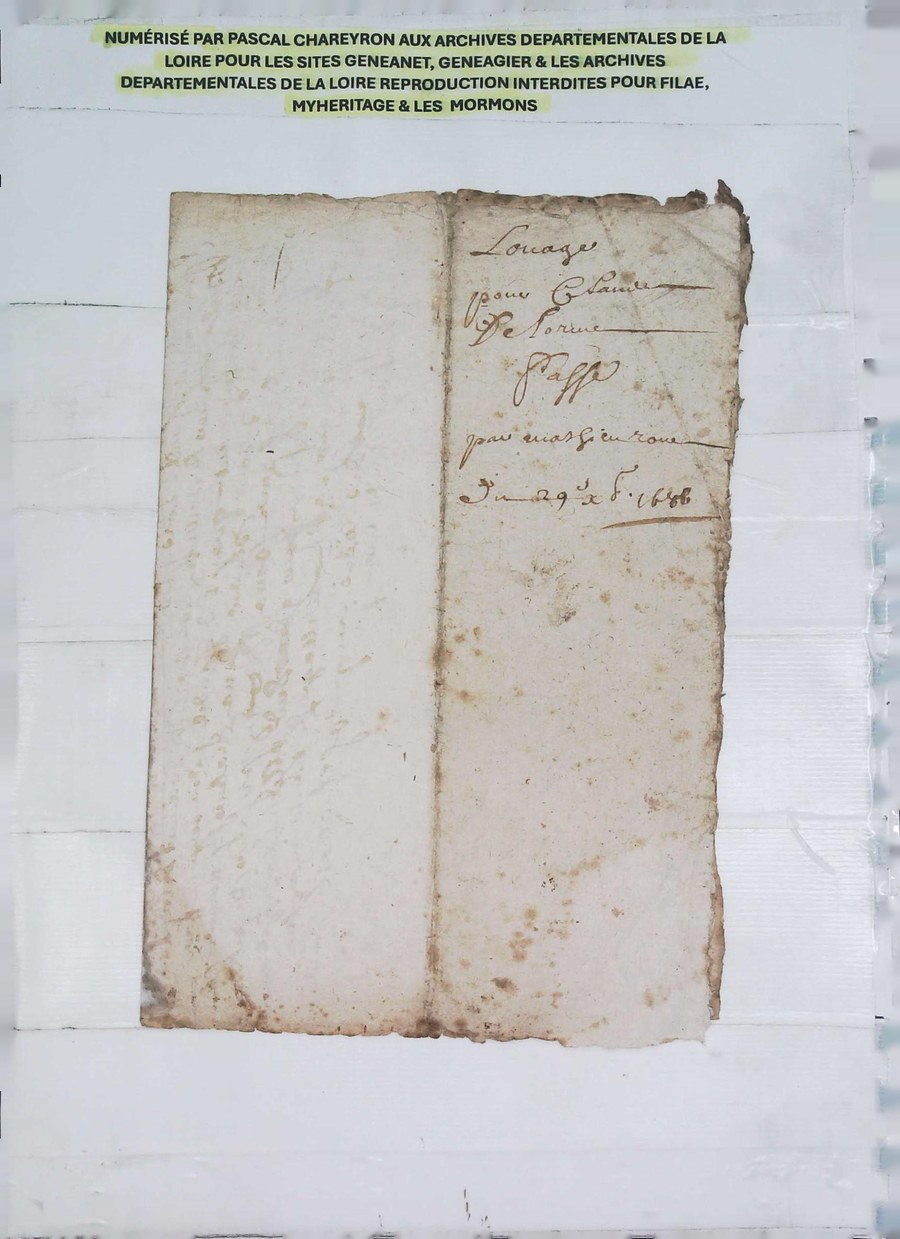 NUMÉRISÉ PAR PASCAL CHAREYRON AUX ARCHIVES DEPARTEMENTALES DE LA
LOIRE POUR LES SITES GENEANET, GENEAGIER & LES ARCHIVES
DEPARTEMENTALES DE LA LOIRE REPRODUCTION INTERDITES POUR FILAE,
MYHERITAGE & LES MORMONS
Louage
pour Claude
Delorme
Passé
par mathieu
Du 29e xbr. 1686